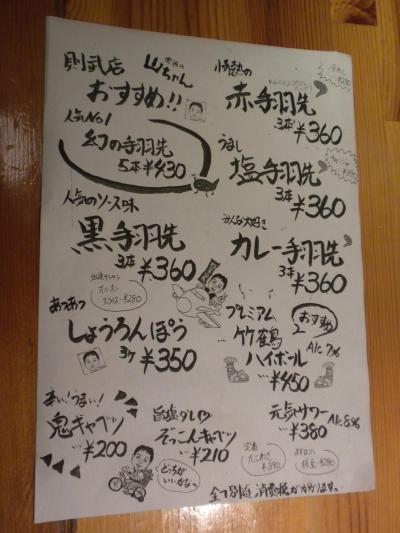 則武店
世界の
山ちゃん
おすすめ!!
人気No1
幻の手羽先
5本¥430
人気のソース味
黒手羽先
3本¥360
オニオン
スライス…¥280
あつあつ
しょうろんぽう
3ケ¥350
辛い!うまい!
鬼キャベツ
…¥200
どっちが
いいかな〜
情熱の
赤手羽先
3本¥360
うまし
塩手羽先
3本¥360
みんな大好き
カレー手羽先
3本¥360
プレミアム
竹鶴
ハイボール
…¥450
おすすめ
Alc7%
旨塩ダレ
ぞっこんキャベツ
…¥210
元気サワー
Alc8%
…¥380
定番
たこわさ
¥390
枝豆…¥280
全て別途消費税がかかります。